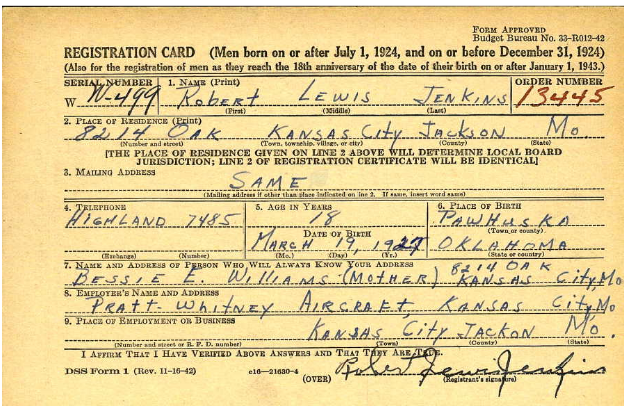 FORM APPROVED
Budget Bureau No. 33-R012-42
REGISTRATION CARD (Men born on or after July 1, 1924, and on or before December 31, 1924)
(Also for the registration of men as they reach the 18th anniversary of the date of their birth on or after January 1, 1943.)
SERIAL NUMBER 1. NAME (Print) ORDER NUMBER
W N-499 ROBERT LEWIS JENKINS 13445
(First) (Middle) (Last)
2. PLACE OF RESIDENCE (Print)
8214 OAK KANSAS CITY JACKSON MO
(Number and street) (Town, township, village, or city) (County) (State)
[THE PLACE OF RESIDENCE GIVEN ON LINE 2 ABOVE WILL DETERMINE LOCAL BOARD
JURISDICTION; LINE 2 OF REGISTRATION CERTIFICATE WILL BE IDENTICAL]
3. MAILING ADDRESS
SAME
(Mailing address if other than place indicated on line 2. If same, insert word same)
4. TELEPHONE 5. AGE IN YEARS 6. PLACE OF BIRTH
HIGHLAND 7485 18 PAWHUSKA
(Town or county)
DATE OF BIRTH
MARCH 19, OKLAHOMA
(Exchange) (Number) (Mo.) (Day) (Yr.) (State or country)
7. NAME AND ADDRESS OF PERSON WHO WILL ALWAYS KNOW YOUR ADDRESS
BESSIE E. WILLIAMS (MOTHER) 8214 OAK KANSAS CITY, MO
8. EMPLOYER'S NAME AND ADDRESS
PRATT-WHITNEY AIRCRAFT, KANSAS CITY, MO
9. PLACE OF EMPLOYMENT OR BUSINESS
KANSAS CITY JACKON MO.
(Number and street or R. F. D. number) (Town) (County) (State)
I AFFIRM THAT I HAVE VERIFIED ABOVE ANSWERS AND THAT THEY ARE TRUE.
DSS Form 1 (Rev. 11-16-42) c16—21630-4 Robert Lewis Jenkins
(OVER) (Registrant's signature)